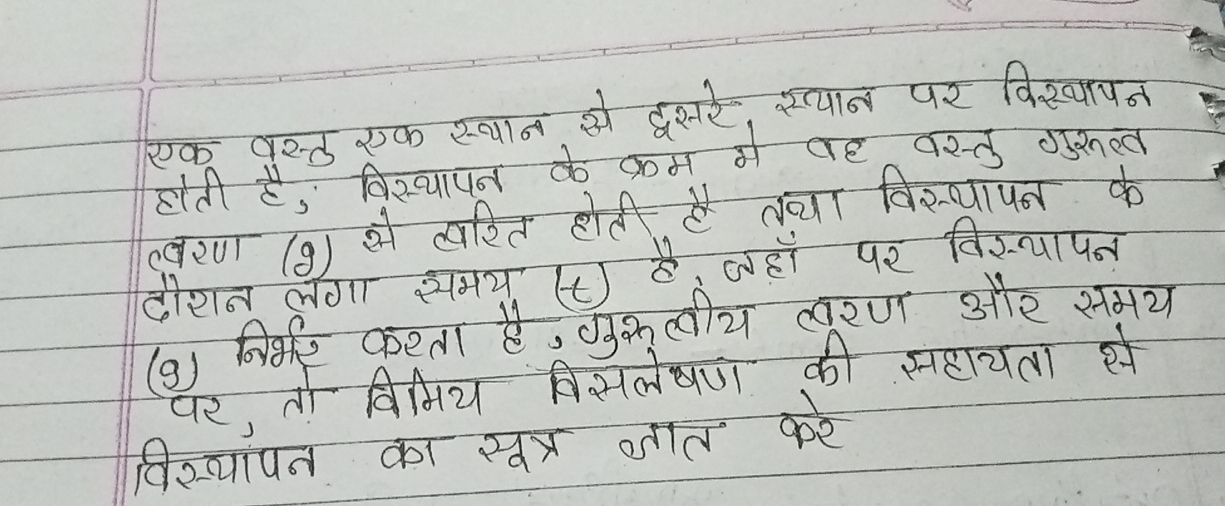 एक वस्तु एक स्थान से दूसरे स्थान पर विस्थापन
होती है, विस्थापन के क्रम मे वह वस्तु गुरूत्व
त्वरण (g) से त्वरित होती है तथा विस्थापन के
दौरान लगा समय (t) है, जहाँ पर विस्थापन
(g) निर्भर करता है, गुरूत्वीय त्वरण और समय
पर, तो विमिय विसलेषण की सहायता से
विस्थापन का सूत्र ज्ञात करे